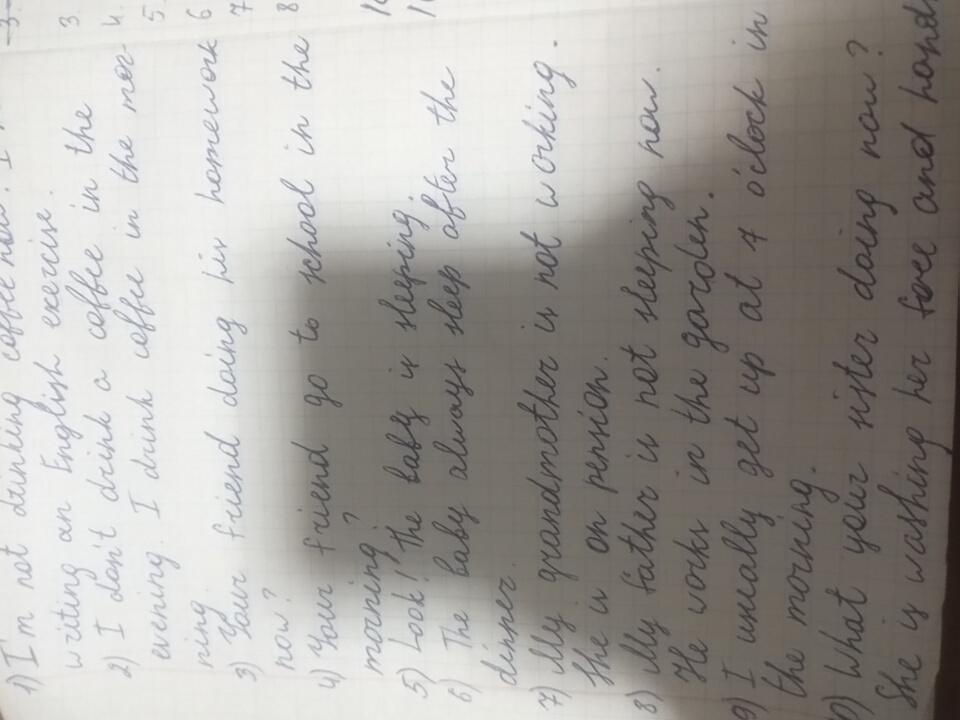 1) I'm not drinking coffee now. I
writing an English exercise.
2) I don't drink a coffee in the
evening. I drink coffee in the mor-
ning.
3) Your friend doing his homework
now?
4) Your friend go to school in the
morning?
5) Look! The baby is sleeping.
6) The baby always sleep after the
dinner.
7) My grandmother is not working.
She is on pension.
8) My father is not sleeping now.
He works in the garden.
9) I usually get up at 7 o'clock in
the morning.
0) What your sister doing now?
She is washing her face and hands
3.
3.
4.
5.
6
7
8